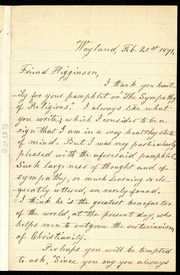 Wayland, Feb. 21st 1871.
Friend Higginson,
I thank you heart-
ily for your pamphlet on "The Sympathy
of Religions." I always like what
you write; which I consider to be a
sign that I am in a very healthy state
of mind. But I was very particularly
pleased with the aforesaid pamphlet.
Such largeness of thought and of
sympathy, so much learning so elo-
quently uttered, are rarely found.
I think he is the greatest benefactor
of the world, at the present day, who
helps men to outgrow the sectarianism
of Christianity.
Perhaps you will be tempted
to ask, "Since you say you always